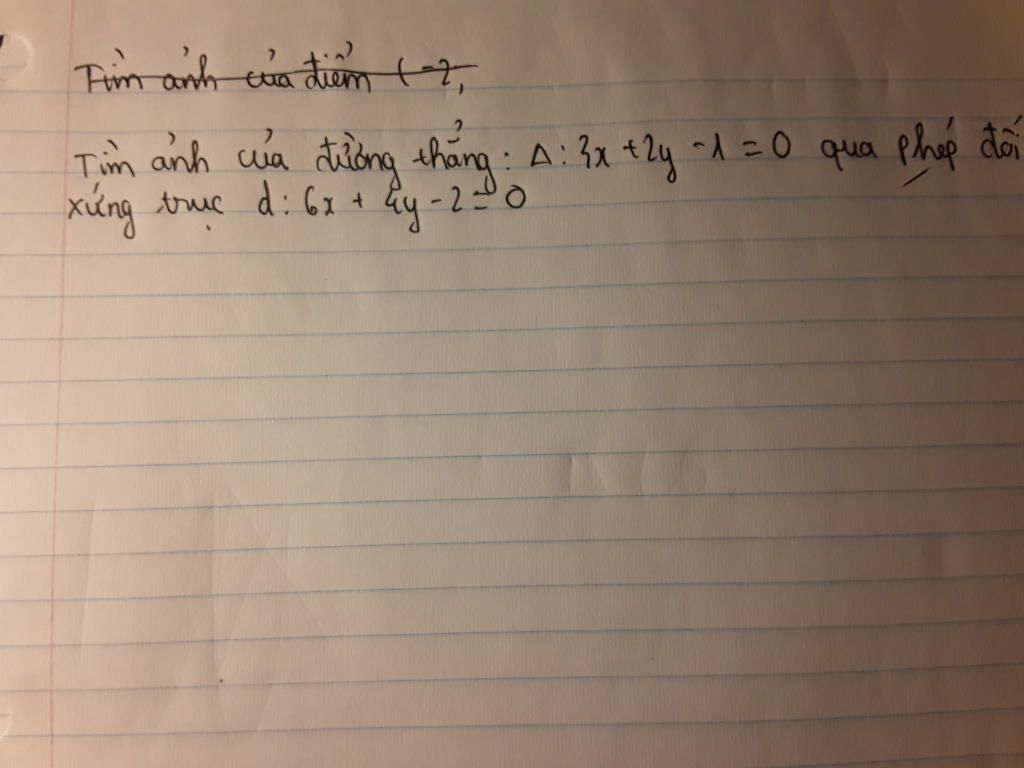 Tìm ảnh của điểm (-2,
Tìm ảnh của đường thẳng: Δ: 3x + 2y - 1 = 0 qua phép đối
xứng trục d: 6x + 4y - 2 = 0